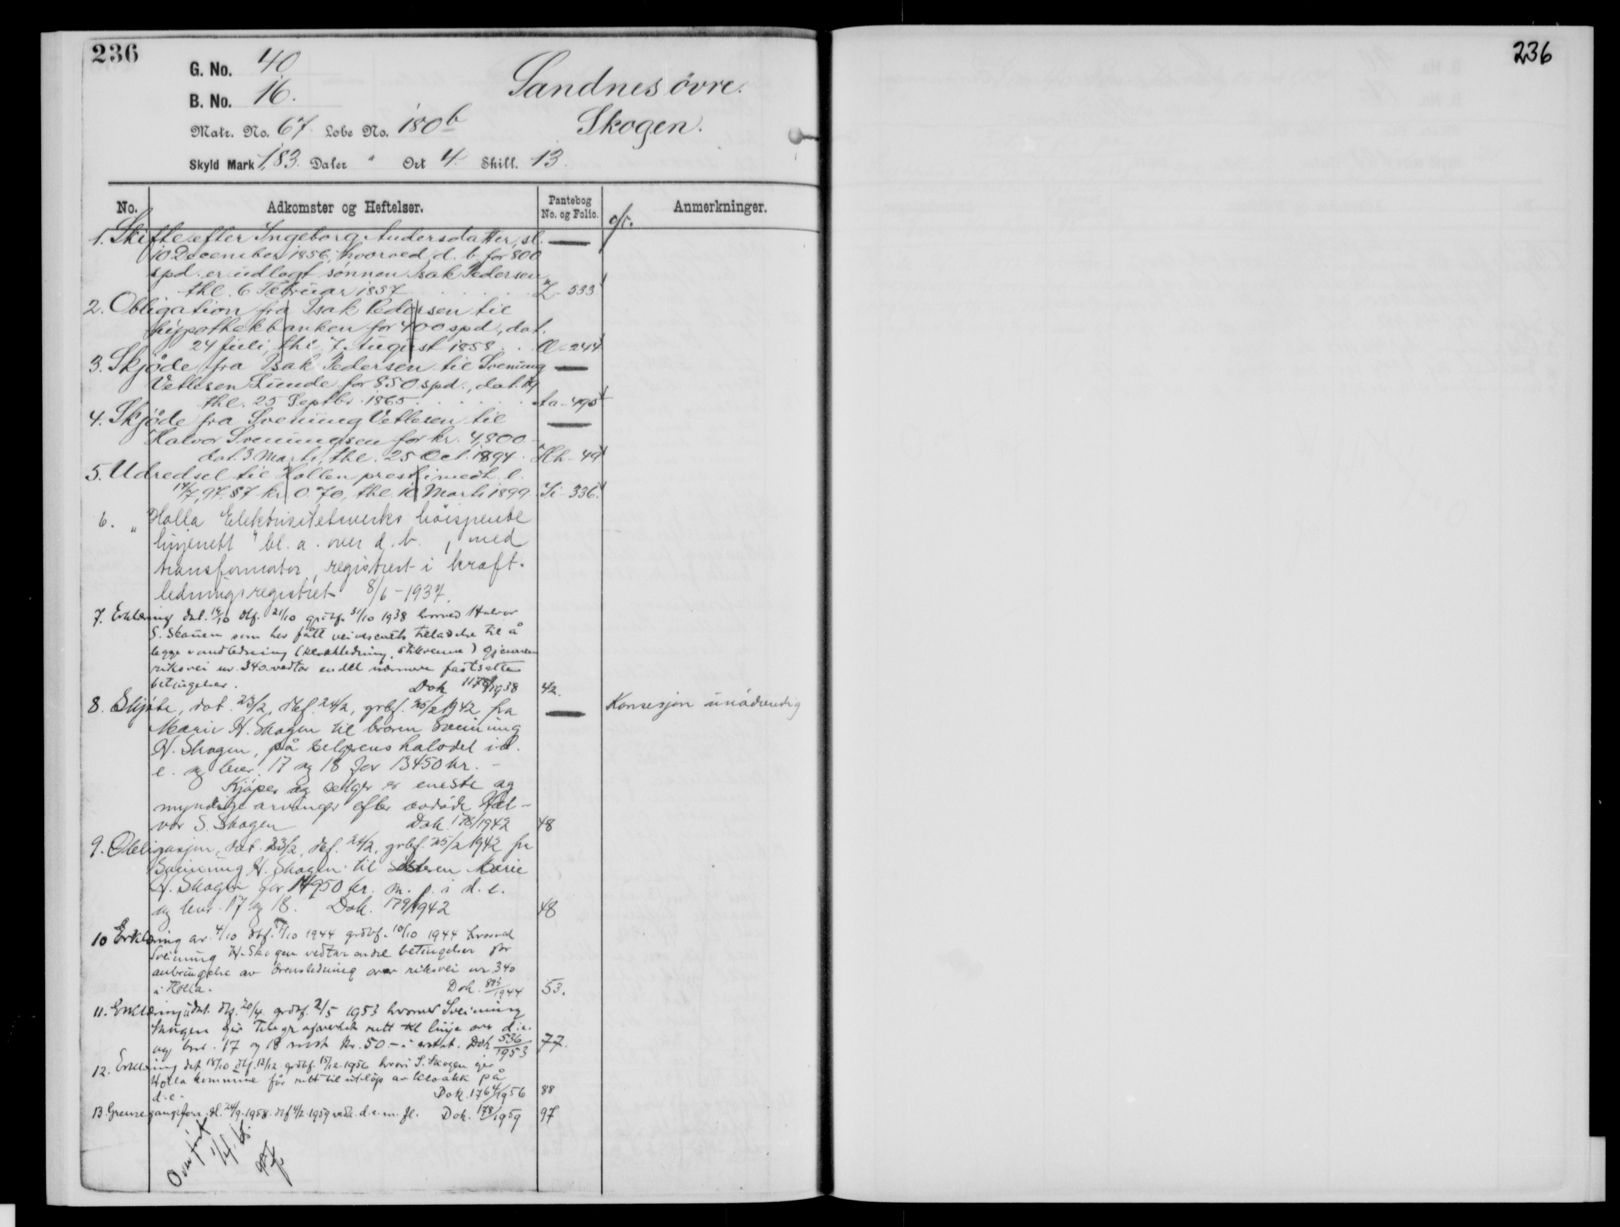 236
G. No. 40
B. No. 16.
Sandnes øvre.
Matr. No. 67. Løbe No. 180b
Skogen.
Skyld Mark 1,83. Daler " Ort 4. Skill. 13.
No. Adkomster og Heftelser. Pantebog No. og Folio. Anmerkninger.
1. Skifte efter Ingeborg Andersdatter, sl.
10 December 1856, hvorved d. b. for 800
spd. er udlagt sønnen Isak Pedersen,
thl. 6 Februar 1857 Z - 533
2. Obligation fra Isak Pedersen til
hypothekbanken for 400 spd., dat.
24 juli, thl. 7 August 1858. 244
3. Skjøde fra Isak Pedersen til Svenung
Vetlesen Lunde for 850 spd., dat. og
thl. 25 Septbr. 1865. Aa - 495
4. Skjøde fra Svenung Vetlesen til
Halvor Svenungsen for kr. 4,800 -
dat. 3 Marts, thl. 25 Oct. 1894. Hh - 49
5. Udredsel til Hollen prest i medh. l.
14/7, 97. 87 kr. 0.70, thl. 10 Marts 1899. Ii - 336.
6. " Holla Elektrisitetsverks høispente
linjenett " bl. a. over d. b., med
transformator, registrert i kraft-
ledningsregistret 8/6 - 1937.
7. Erklæring dat. 14/10 dbf. 21/10 grbf. 31/10 1938 hvorved Halvor
S. Skauen som har fått veivesenets tilladelse til å
legge vandledning (kloakkledning, stikrenne) gjennem
riksvei nr. 340 vedtar endel nærmere fastsatte
betingelser. Dok 1938 42.
8. Skjøte, dat. 23/2, dbf. 24/2, grbf. 25/2 1942 fra
Marie H. Skogen til broren Sveinung
H. Skogen, på selgerens halvdel i d.
e. og bnr. 17 og 18 for 13450 kr. -
Konsesjon unødvendig
Kjøper og selger er eneste og
myndige arvinger efter avdøde Hal-
vor S. Skogen Dok. 178/1942 48
9. Obligasjon, dat. 23/2, dbf. 24/2, grbf. 25/2 1942 fra
Sveinung H. Skogen til søsteren Marie
H. Skogen for 14950 kr. m. p. i d. e.
og bnr. 17 og 18. Dok. 179/1942 48
10 Erklæring av 4/10 dbf. 1944 grbf. 10/10 1944 hvorved
Sveinung H. Skogen vedtar endel betingelser for
anbringelse av drensledning over riksvei nr. 340
i Holla. Dok. 803/1944 53.
11. Erklæring dat. dbf. 20/4 grbf. 2/5 1953 hvorved Sveinung
Skogen gir Telegrafverket rett til linje over d.e.
og bnr. 17 og 18 mot kr. 50 - i erstat. Dok 536/1953 77.
12. Erklæring dat 18/10 dbf. 13/12 grbf. 15/12 1956 hvori S. Skogen gir
Holla kommune før rett til utløp av kloakk på
d.e. Dok. 1764/1956 88
13 Grensegangsforr. dl. 24/9 1958 dbf 4/2 1959 vedk. d.e. m. fl. Dok. 178/1959 97
Overført
1/4 65
236